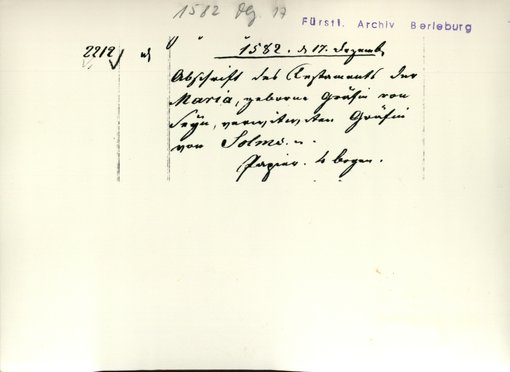 1582 Dez 17
Fürstl. Archiv Berleburg
2212 1582. d 17. Dezemb.
Abschrift des Testaments der
Maria, geborne Gräfin von
Seyn, verwitweten Gräfin
von Solms.
Papier. 4 bogen.